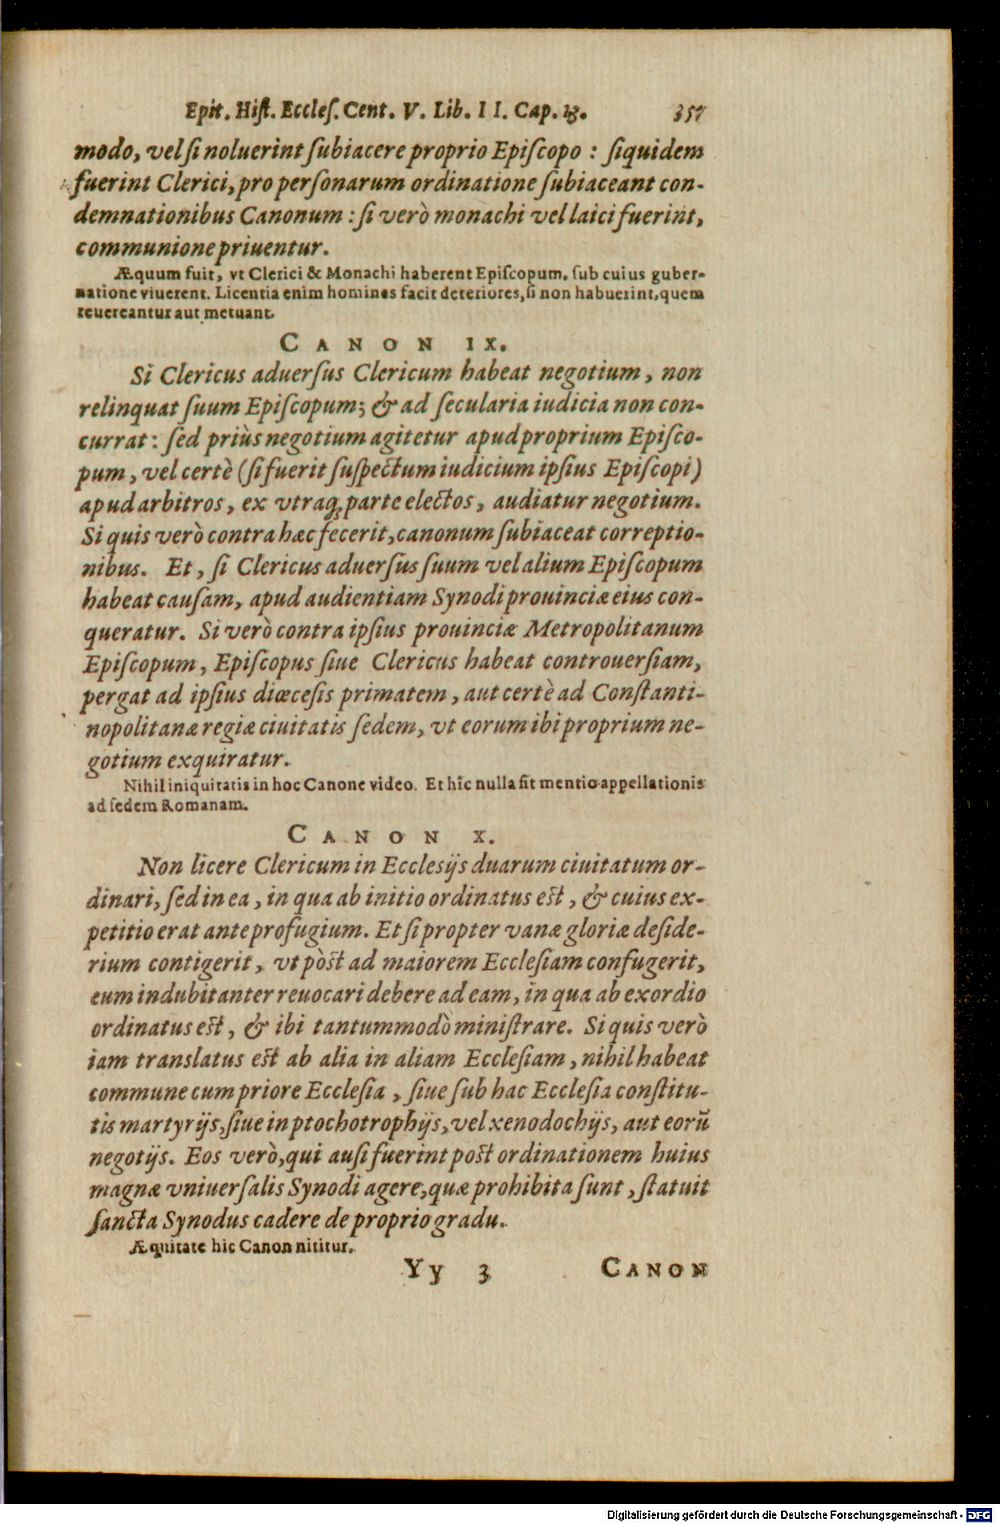 Epit. Hiſt. Eccleſ. Cent. V. Lib. II. Cap. 13. 357
modo, vel ſi noluerint ſubiacere proprio Epiſcopo : ſiquidem
fuerint Clerici, pro perſonarum ordinatione ſubiaceant con-
demnationibus Canonum : ſi verò monachi vel laici fuerint,
communione priuentur.
Æquum fuit, vt Clerici & Monachi haberent Epiſcopum, ſub cuius guber-
natione viuerent. Licentia enim homines facit deteriores, ſi non habuerint, quem
reuereantur aut metuant.
CANON IX.
Si Clericus aduerſus Clericum habeat negotium, non
relinquat ſuum Epiſcopum; & ad ſecularia iudicia non con-
currat : ſed priùs negotium agitetur apud proprium Epiſco-
pum, vel certè (ſi fuerit ſuſpectum iudicium ipſius Epiſcopi)
apud arbitros, ex vtraq; parte electos, audiatur negotium.
Si quis verò contra hæc fecerit, canonum ſubiaceat correptio-
nibus. Et, ſi Clericus aduerſus ſuum vel alium Epiſcopum
habeat cauſam, apud audientiam Synodi prouinciæ eius con-
queratur. Si verò contra ipſius prouinciæ Metropolitanum
Epiſcopum, Epiſcopus ſiue Clericus habeat controuerſiam,
pergat ad ipſius diœceſis primatem, aut certè ad Conſtanti-
nopolitanæ regiæ ciuitatis ſedem, vt eorum ibi proprium ne-
gotium exquiratur.
Nihil iniquitatis in hoc Canone video. Et hîc nulla fit mentio appellationis
ad ſedem Romanam.
CANON X.
Non licere Clericum in Eccleſijs duarum ciuitatum or-
dinari, ſed in ea, in qua ab initio ordinatus eſt, & cuius ex-
petitio erat ante profugium. Et ſi propter vanæ gloriæ deſide-
rium contigerit, vt pòſt ad maiorem Eccleſiam confugerit,
eum indubitanter reuocari debere ad eam, in qua ab exordio
ordinatus eſt, & ibi tantummodò miniſtrare. Si quis verò
iam translatus eſt ab alia in aliam Eccleſiam, nihil habeat
commune cum priore Eccleſia, ſiue ſub hac Eccleſia conſtitu-
tis martyrijs, ſiue in ptochotrophijs, vel xenodochijs, aut eorũ
negotijs. Eos verò, qui auſi fuerint poſt ordinationem huius
magnæ vniuerſalis Synodi agere, quæ prohibita ſunt, ſtatuit
ſancta Synodus cadere de proprio gradu.
Æquitate hic Canon nititur.
Yy 3 CANON
Digitalisierung gefördert durch die Deutsche Forschungsgemeinschaft - DFG